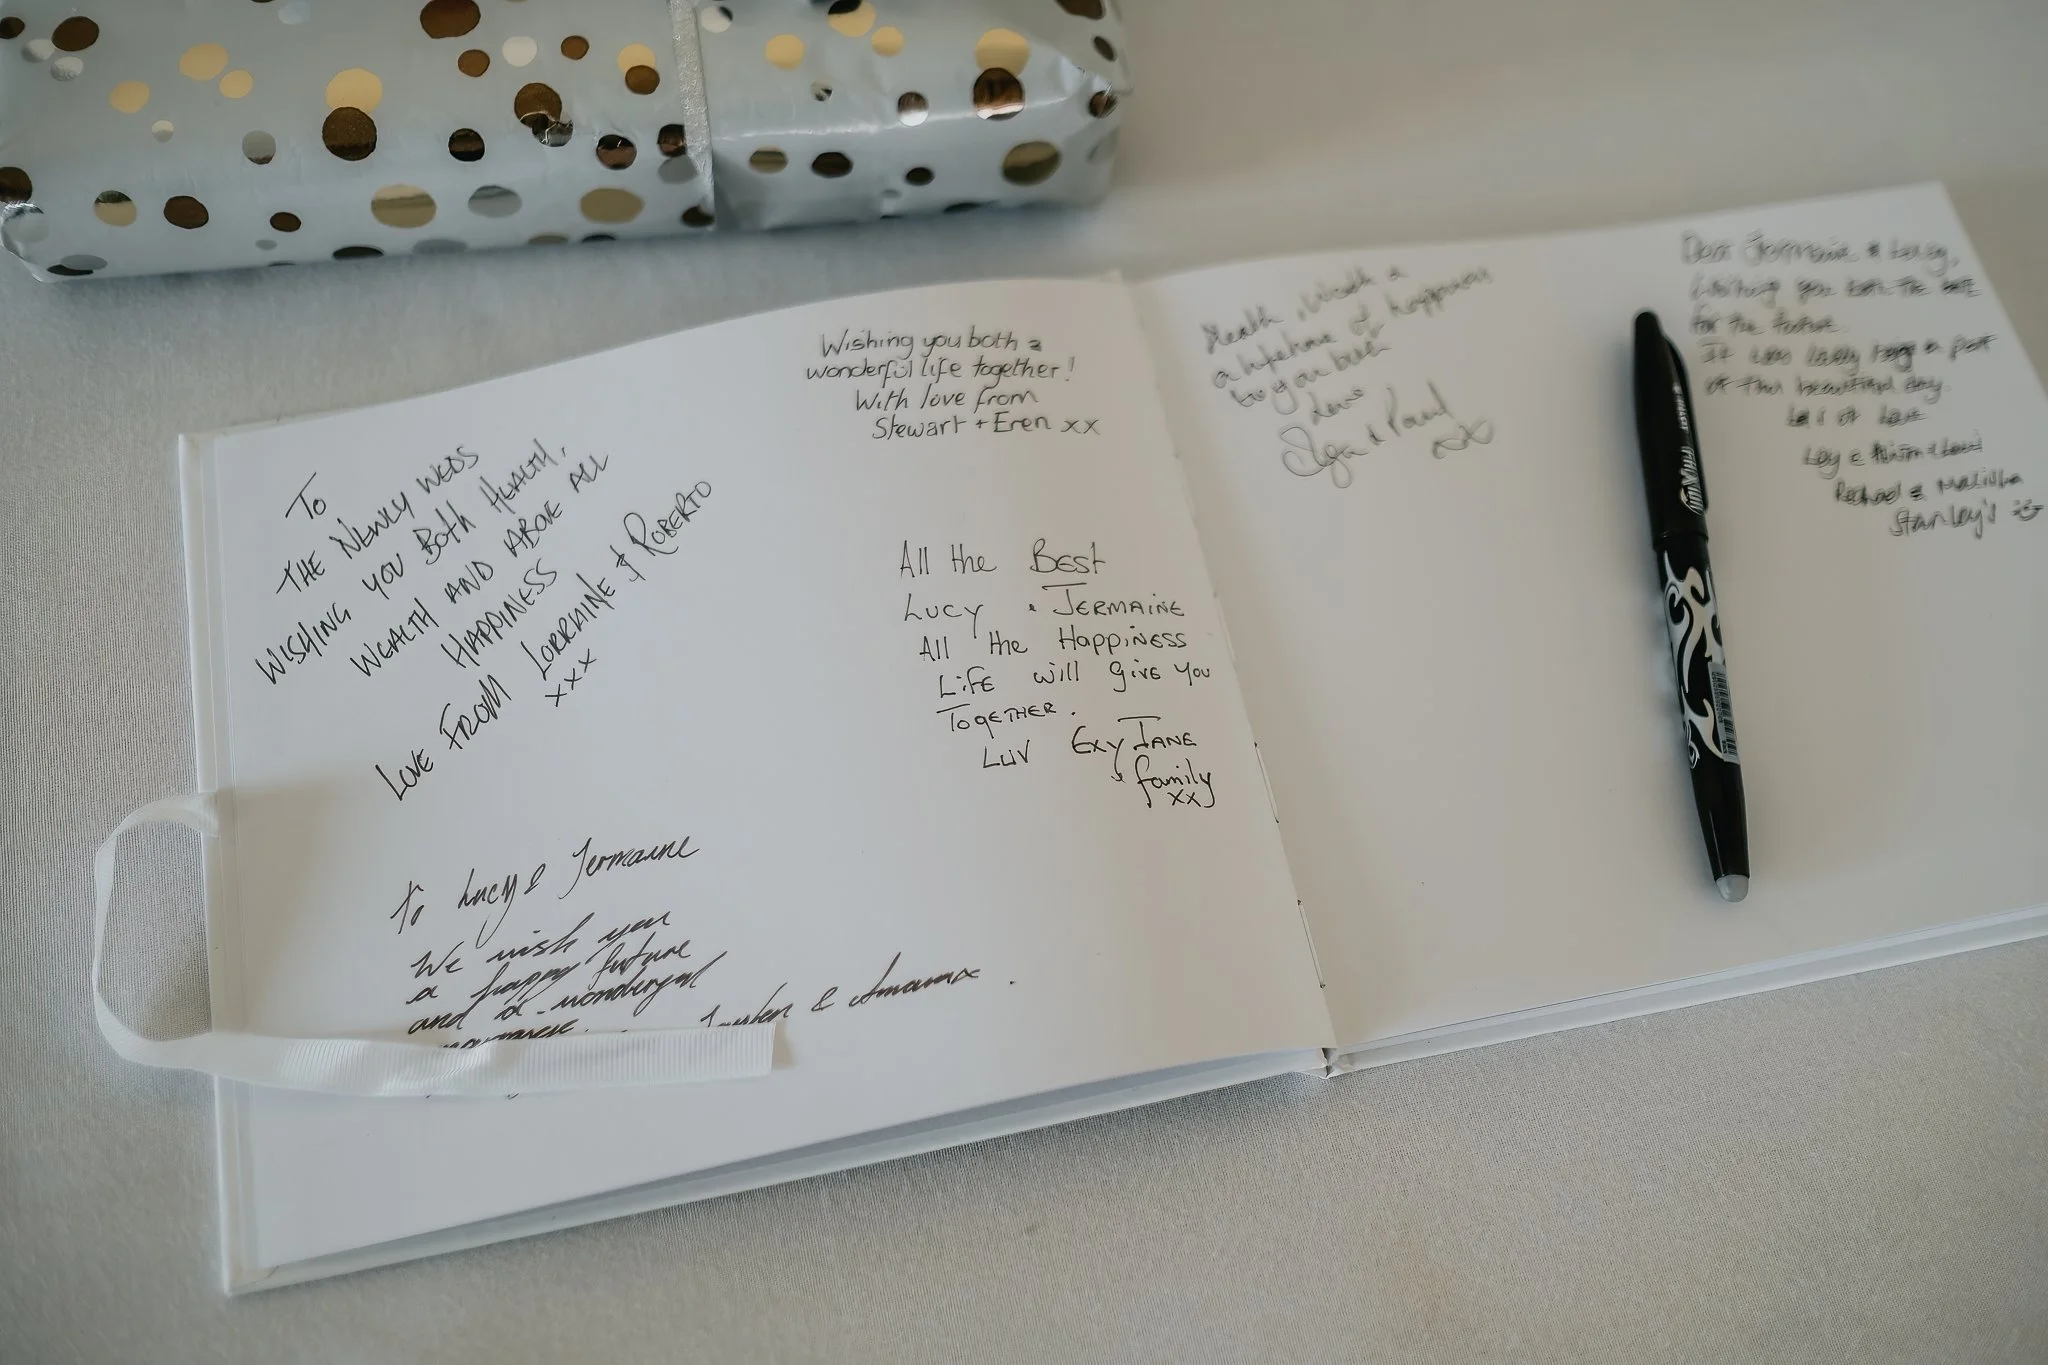 To
THE NEWLY WEDS
WISHING YOU BOTH HEALTH,
WEALTH AND ABOVE ALL
HAPPINESS
LOVE FROM LORRAINE & ROBERTO
xxx
Wishing you both a
wonderful life together!
With love from
Stewart + Eren xx
All the Best
Lucy & Jermaine
All the Happiness
Life will give you
Together.
Luv Exy Jane
& family
xx
To Lucy & Jermaine
We wish you
a happy future
and a wonderful
&
Health, Wealth &
a lifetime of happiness
to you both
Love
Olga & Paul
xx
Dear Jermaine & Lucy,
Wishing you both the best
for the future.
It was lovely being a part
of this beautiful day.
Lots of love
Stanley's